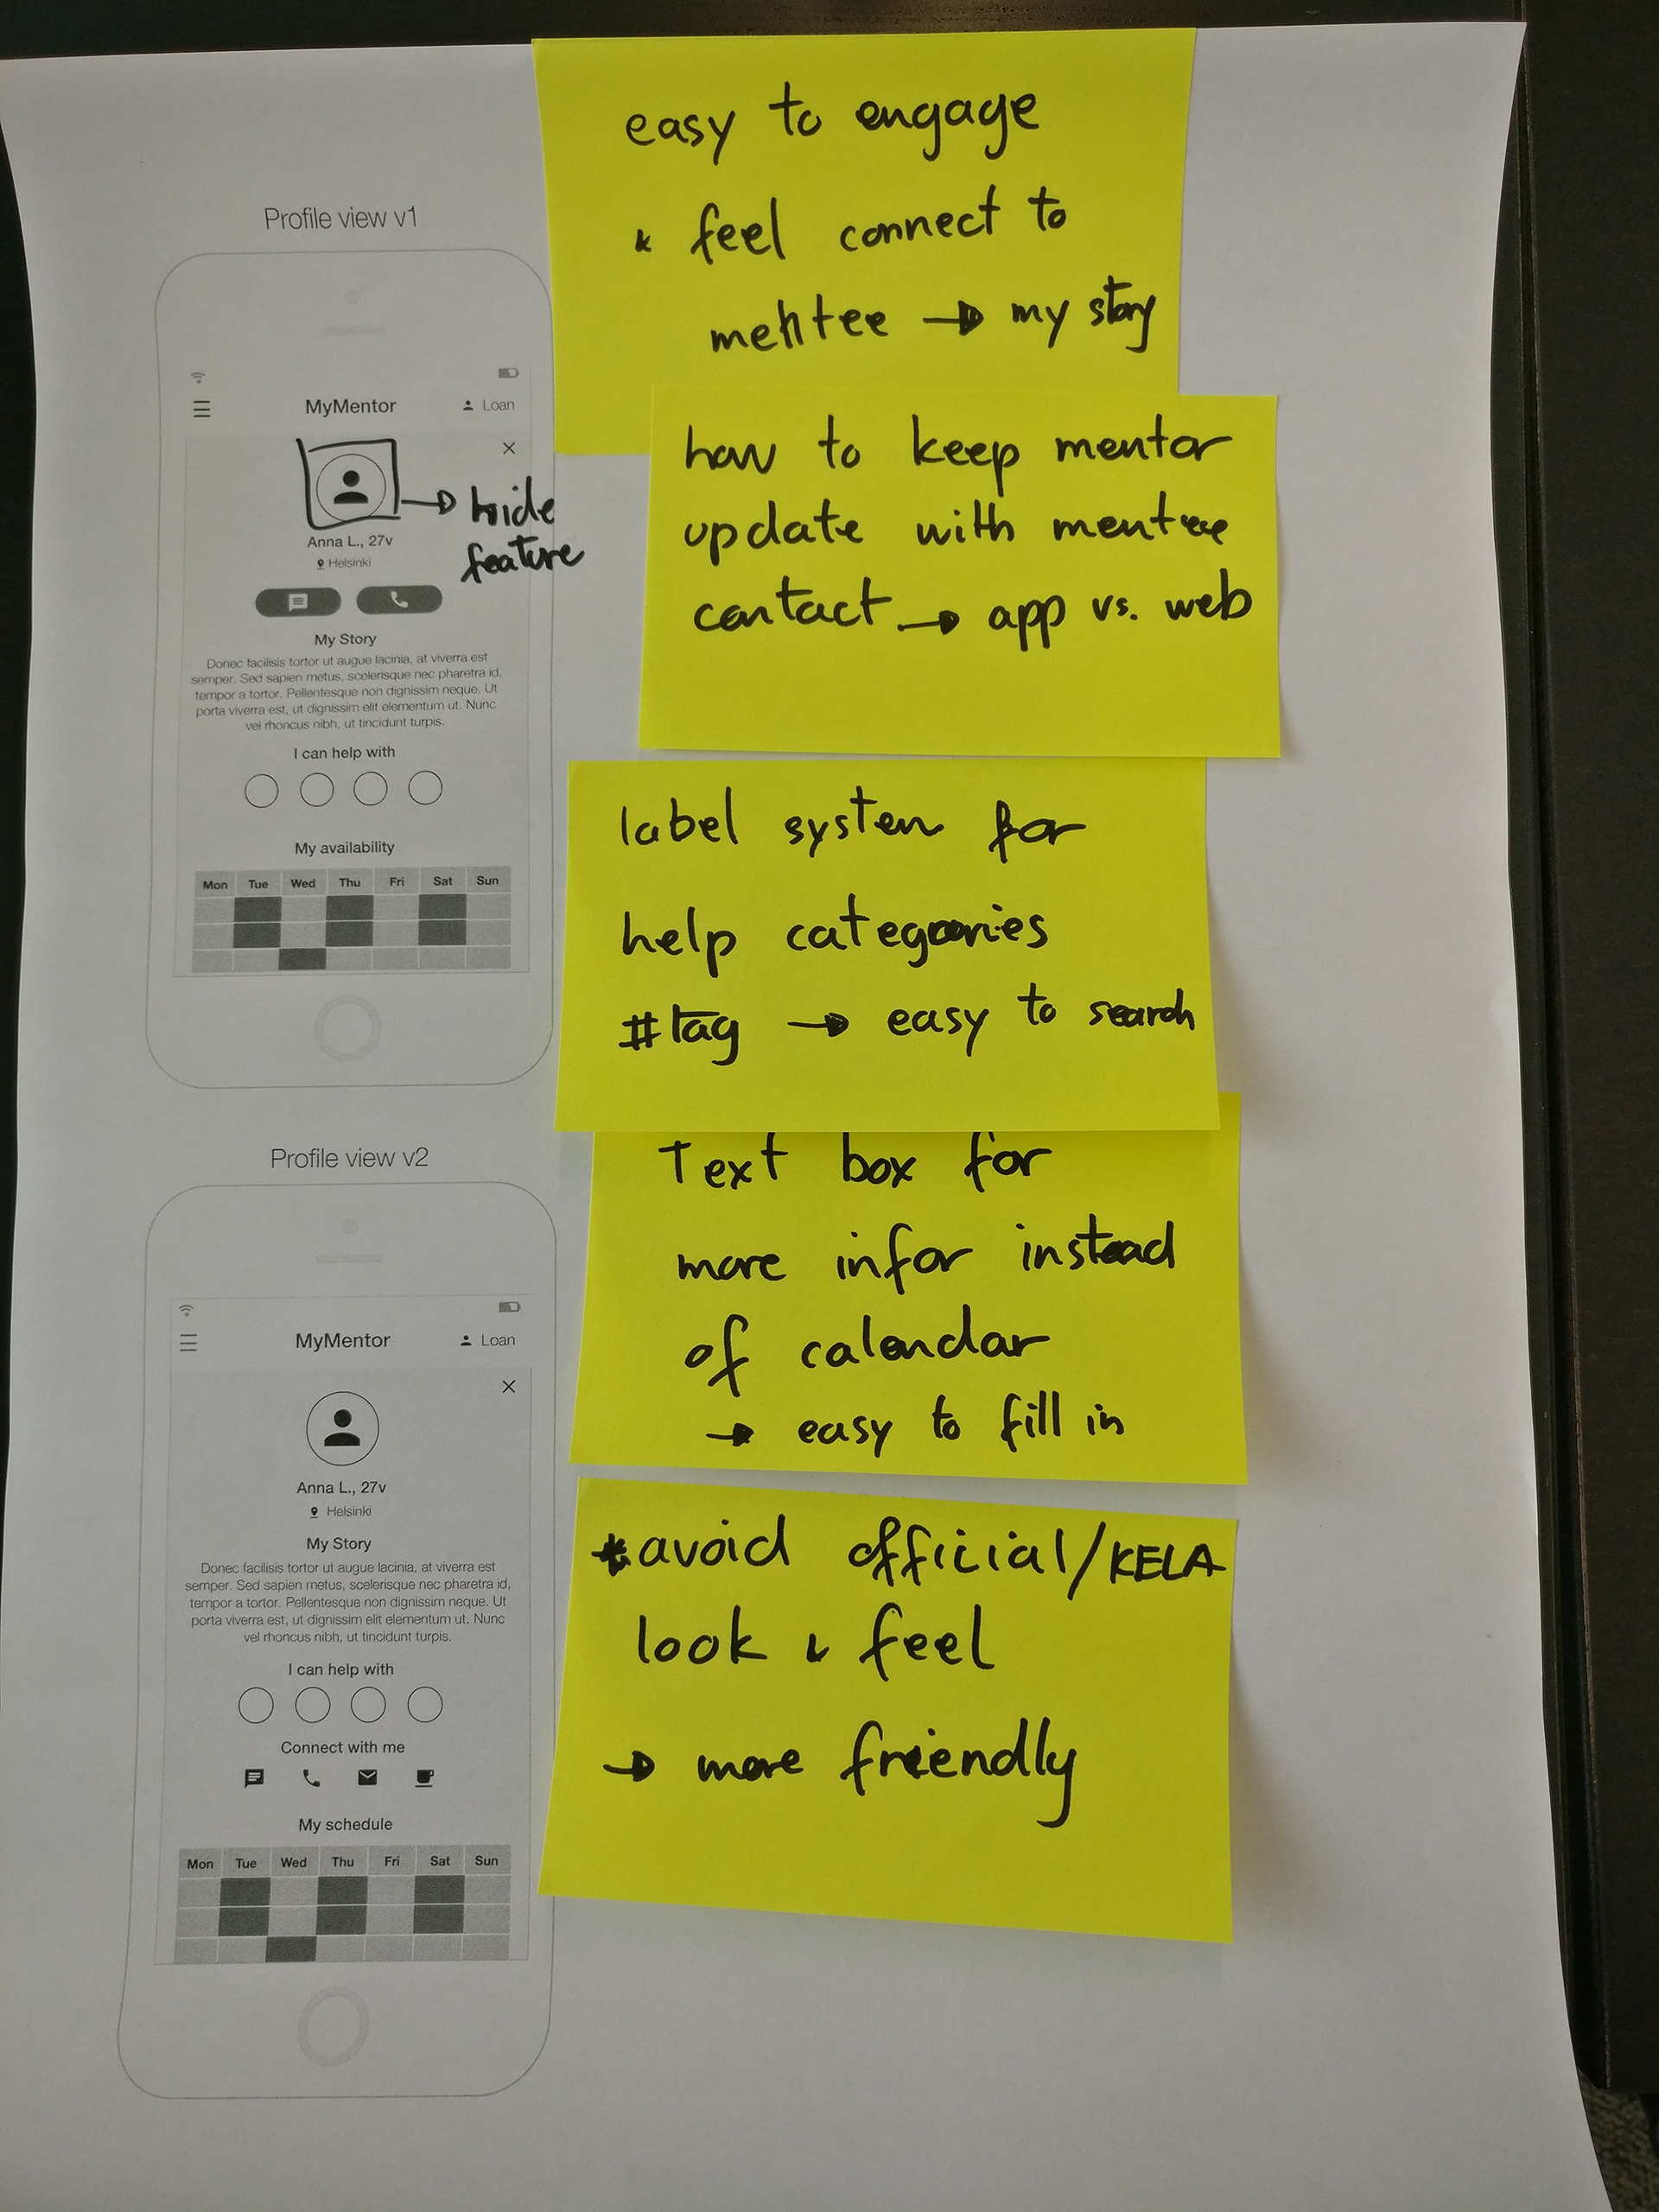 Profile view v1
MyMentor
Loan
hide
feature
Anna L., 27v
Helsinki
My Story
Donec facilisis tortor ut augue lacinia, at viverra est
semper. Sed sapien metus, scelerisque nec pharetra id,
tempor a tortor. Pellentesque non dignissim neque. Ut
porta viverra est, ut dignissim elit elementum ut. Nunc
vel rhoncus nibh, ut tincidunt turpis.
I can help with
My availability
Mon Tue Wed Thu Fri Sat Sun
Profile view v2
MyMentor
Loan
Anna L., 27v
Helsinki
My Story
Donec facilisis tortor ut augue lacinia, at viverra est
semper. Sed sapien metus, scelerisque nec pharetra id,
tempor a tortor. Pellentesque non dignissim neque. Ut
porta viverra est, ut dignissim elit elementum ut. Nunc
vel rhoncus nibh, ut tincidunt turpis.
I can help with
Connect with me
My schedule
Mon Tue Wed Thu Fri Sat Sun
easy to engage
* feel connect to
mentee → my story
how to keep mentor
update with mentee
contact → app vs. web
label system for
help categories
#tag → easy to search
Text box for
more infor instead
of calendar
→ easy to fill in
*avoid official/KELA
look & feel
→ more friendly